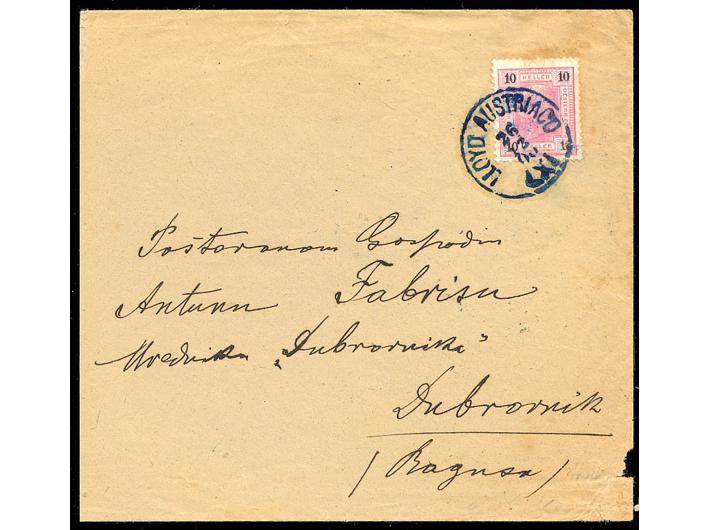 10 HELLER 10
LLOYD AUSTRIACO
Poštovanom Gospodin
Antunu Fabrisu
Uredniku „Dubrovnika"
Dubrovnik
(Ragusa)